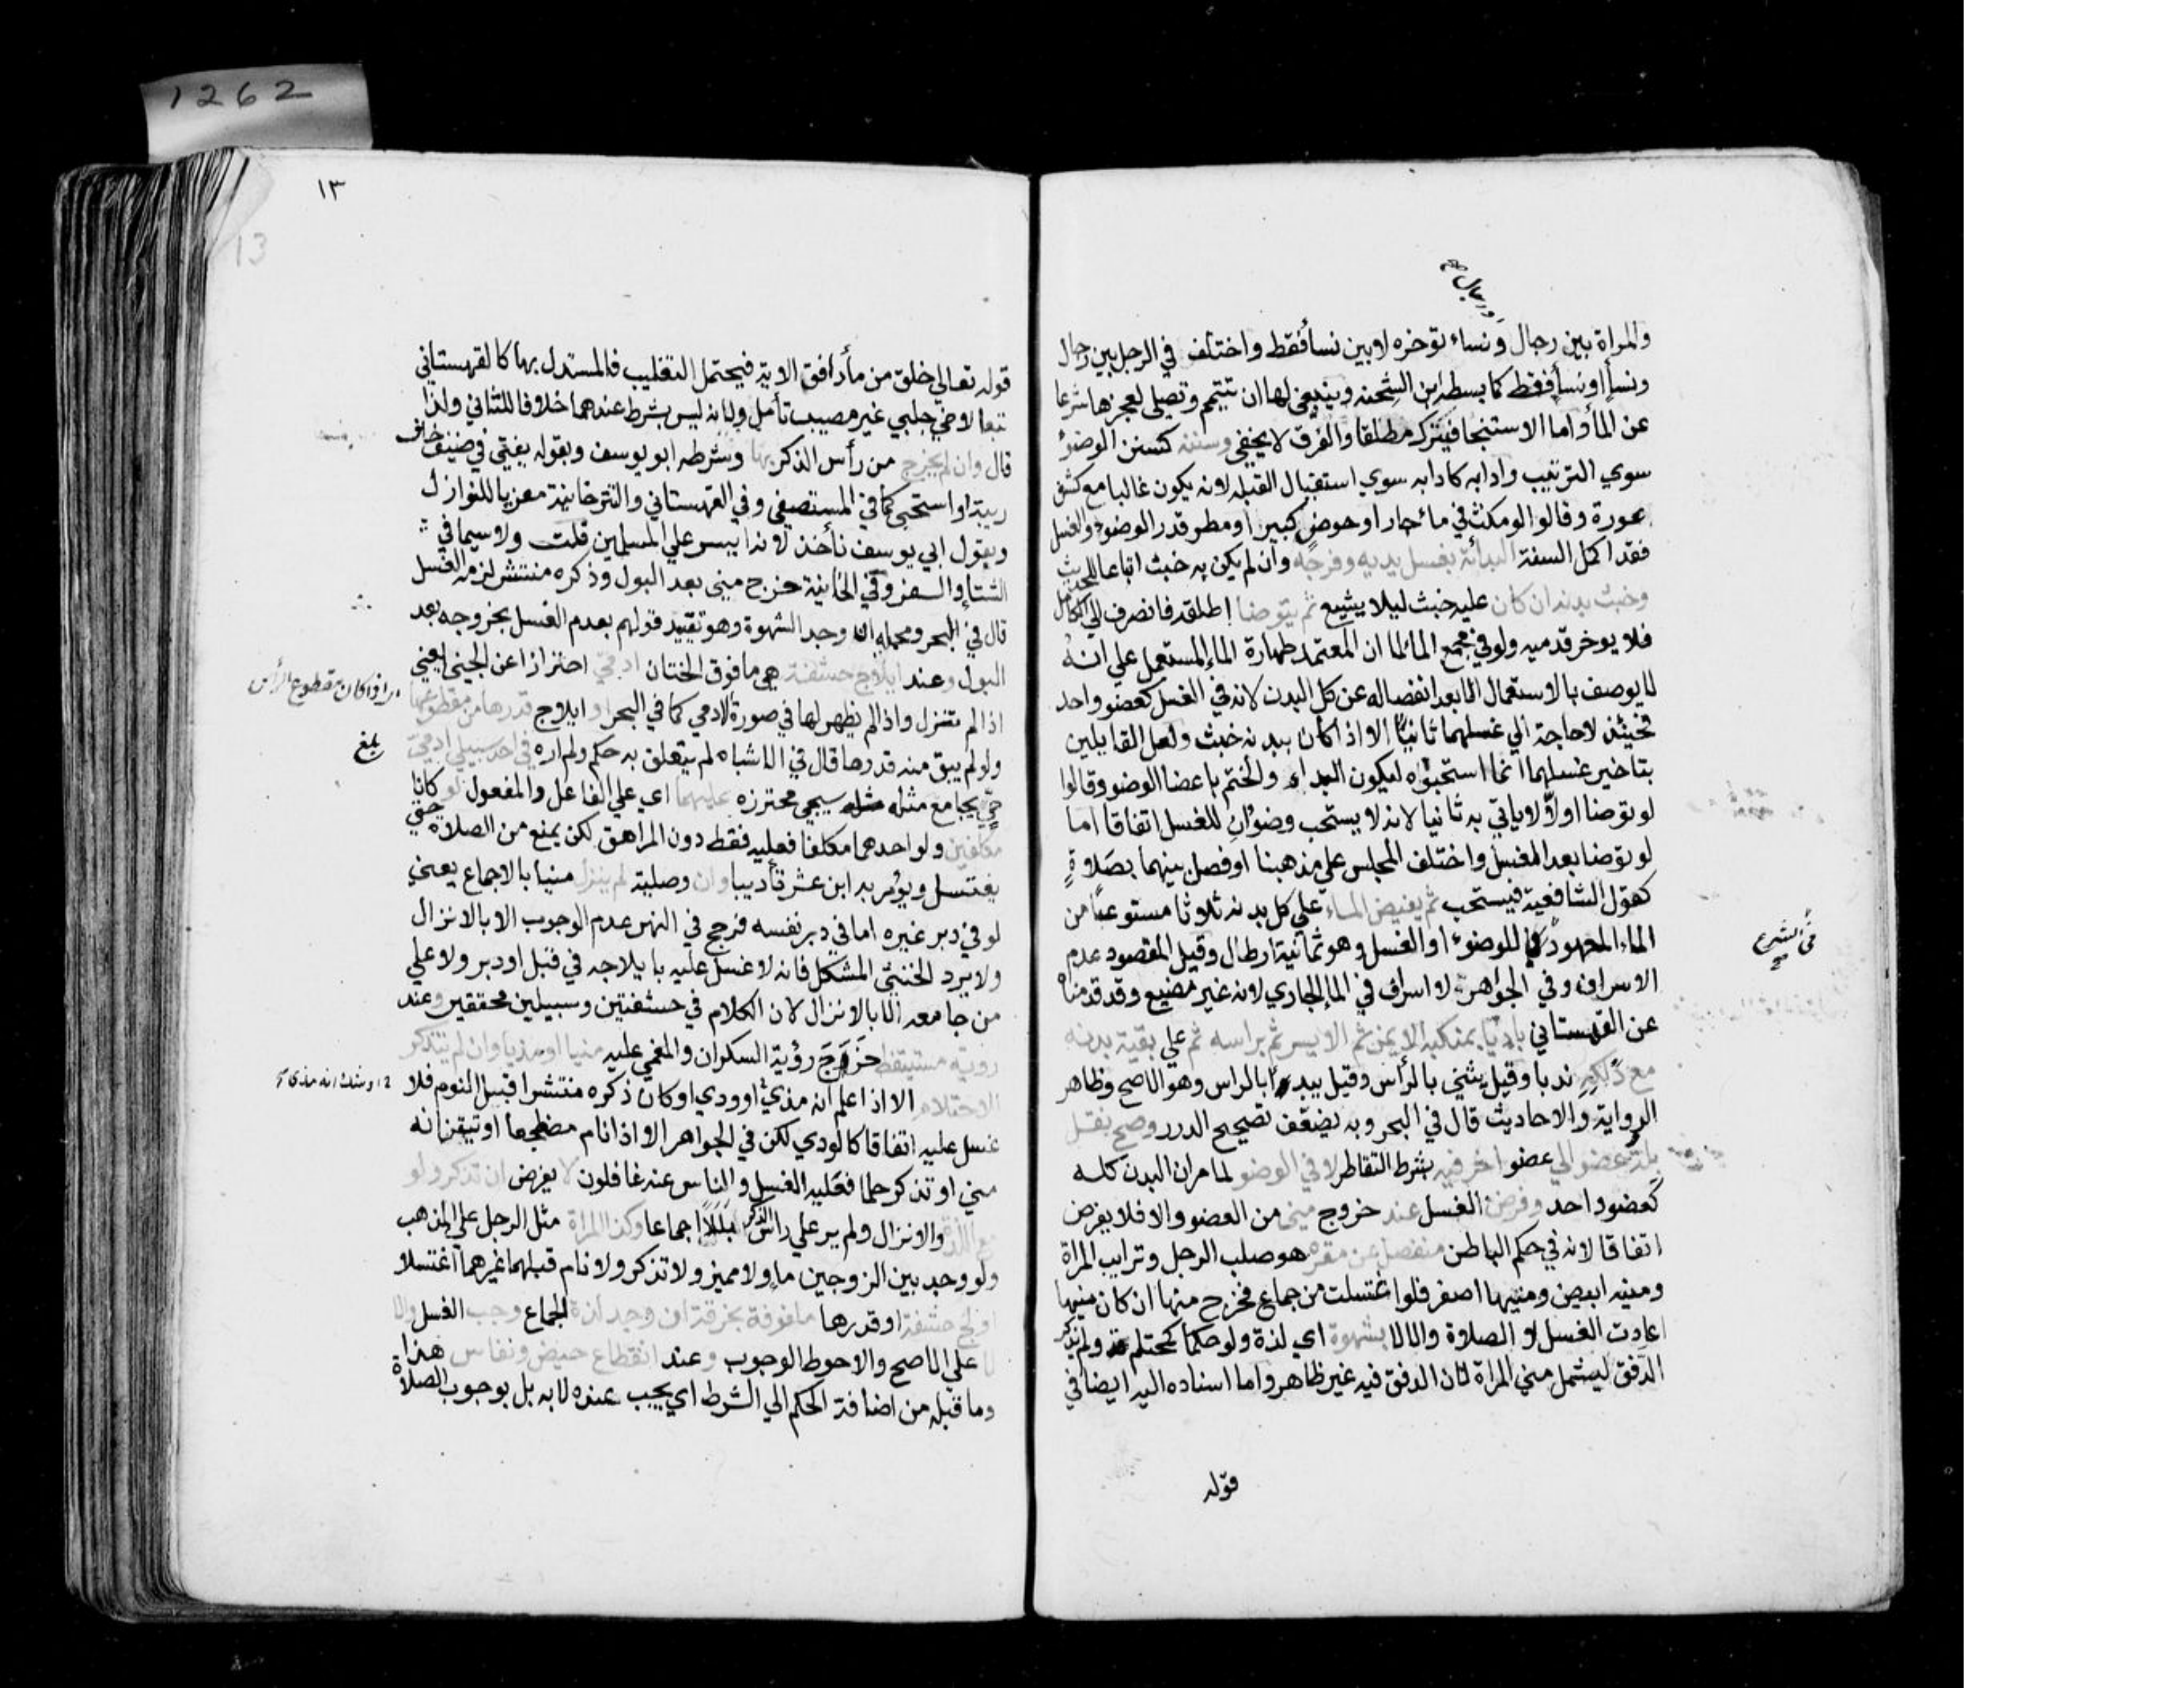 1262
ورجال صح
والمراة بين رجال ونساء توخره لا بين نسأ فقط واختلف في الرجل بين رجال
ونسأ او نسأ فقط كما بسطه ابن الشحنه وينبغي لها ان تتيمم وتصلي لعجزها شرعا
عن الماُ واما الاستنجا فيترك مطلقا والفرق لا يخفي وسننه كسنن الوضوُ
سوي الترتيب وادابه كادابه سوي استقبال القبله لانه يكون غالبا مع كشف
عورة وقالوا لو مكث في ماء جار او حوض كبير او مطر قدر الوضوُ والغسل
فقد اكمل السنة البدائة بغسل يديه وفرجه وان لم يكن به خبث اتباعا للحديث
وخبث بدنه ان كان عليه خبث ليلا يشيع ثم يتوضا اطلقه فانصرف الي الكامل
فلا يوخر قدميه ولو في مجمع الماُ لما ان المعتمد طهارة الماء المستعمل علي انهُ
لا يوصف بالاستعمال الا بعد انفصاله عن كل البدن لانه في الغسل كعضو واحد
فحينئذ لا حاجة الي غسلهما ثانيًا الا اذا كان ببدنه خبث ولعل القايلين
بتاخير غسلهما انما استحبوه ليكون البداء والختم باعضا الوضو وقالوا
لو توضا اولًا لا ياتي به ثانيا لانه لا يستحب وضوُان للغسل اتفاقا اما
لو توضا بعد الغسل واختلف المجلس علي مذهبنا او فصل بينهما بصَلاةٍ
كقول الشافعية فيستحب ثم يفيض الماء علي كل بدنه ثلاثا مستوعبًا من
الماء المعهود للوضوء او الغسل وهو ثمانية ارطال وقيل المقصود عدم
الاسراف وفي الجواهر لا اسراف في الماء الجاري لانه غير مضيع وقد قدمناه
عن القهستاني بادئا بمنكبه الايمن ثم الايسر ثم براسه ثم علي بقية بدنه
مع دلكهِ ندبا وقيل يثني بالرأس وقيل يبدء بالراس وهو الاصح وظاهر
الرواية والاحاديث قال في البحر وبه يضعف تصحيح الدرر وصح نقل
بلة عضو الي عضو اخر فيه بشرط التقاطر لا في الوضو لما مر ان البدن كله
كعضو واحد وفرض الغسل عند خروج مني من العضو والا فلا يفرض
اتفاقا لانه في حكم الباطن منفصل عن مقره هو صلب الرجل وترايب المراة
ومنيه ابيض ومنيها اصفر فلو اغتسلت من جماع فخرج منها ان كان منيها
اعادت الغسل لا الصلاة والا لا بشهوة اي لذة ولو حكما كمحتلم ولم يذكر
الدفق ليشمل مني المراة لان الدفق فيه غير ظاهر واما اسناده اليه ايضا في
قوله
١٣
13
قوله تعالي خلق من مأ دافق الاية فيحتمل التغليب فالمستدل بها كالقهستاني
تبعا لاخي جلبي غير مصيب تأمل ولانه ليس بشرط عندهما خلافا للثاني ولذا
قال وان لم يخرج من رأس الذكر بها وشرطه ابو يوسف وبقوله يفتي في ضيف خاف
ريبة او استحي كما في المستصفي وفي القهستاني والتترخانية معزيا للنوازل
وبقول ابي يوسف نأخذ لانه ايسر علي المسلمين قلت ولاسيما في
الشتاء والسفر وفي الخانية خرج مني بعد البول وذكره منتشر لزمه الغسل
قال في البحر ومحمله ان وجد الشهوة وهو تقييد قولهم بعدم الغسل بخروجه بعد
البول وعند ايلاج حشفة هي ما فوق الختان ادمي احترازا عن الجني يعني
اذا لم تنزل واذا لم يظهر لها في صورة الادمي كما في البحر او ايلاج قدرها من مقطوعها
ولو لم يبق منه قدرها قال في الاشباه لم يتعلق به حكم ولم اره في احد سبيلي ادمي
بلغ
حيّ يجامع مثله سيجي محترزه عليهما اي علي الفاعل والمفعول لو كانا
مكلفين ولو احدهما مكلفا فعليه فقط دون المراهق لكن يمنع من الصلاة حتي
يغتسل ويؤمر به ابن عشر تأديبا وان وصلية لم ينزل منيا بالاجماع يعني
لو في دبر غيره اما في دبر نفسه فرجح في النهر عدم الوجوب الا بالانزال
ولا يرد الخنثي المشكل فانه لا غسل عليه بايلاجه في قبل او دبر ولا علي
من جامعه الا بالانزال لان الكلام في حشفتين وسبيلين محققين وعند
روية مستيقظ خَرَجَ رؤية السكران والمغمي عليه منيا او مذيا وان لم يتذكر
الاحتلام الا اذا علم انه مذيٌ او ودي او كان ذكره منتشرا قبيل النوم فلا
او شك انه مذي
غسل عليه اتفاقا كالودي لكن في الجواهر الا اذا نام مضطجعا او تيقن انه
مني او تذكر حلما فعليه الغسل والناس عنه غافلون لا يفرض ان تذكر ولو
مع اللذة والانزال ولم ير علي راس الذكر بَلَلًا اجماعا وكذا المراة مثل الرجل علي المذهب
ولو وجد بين الزوجين ماء ولا مميز ولا تذكر ولا نام قبلهما غيرهما اغتسلا
اولج حشفة او قدرها ملفوفة بخرقة ان وجد لذة الجماع وجب الغسل والا
لا علي الاصح والاحوط الوجوب وعند انقطاع حيض ونفاس هذا
وما قبله من اضافة الحكم الي الشرط اي يجب عنده لا به بل بوجوب الصلاة